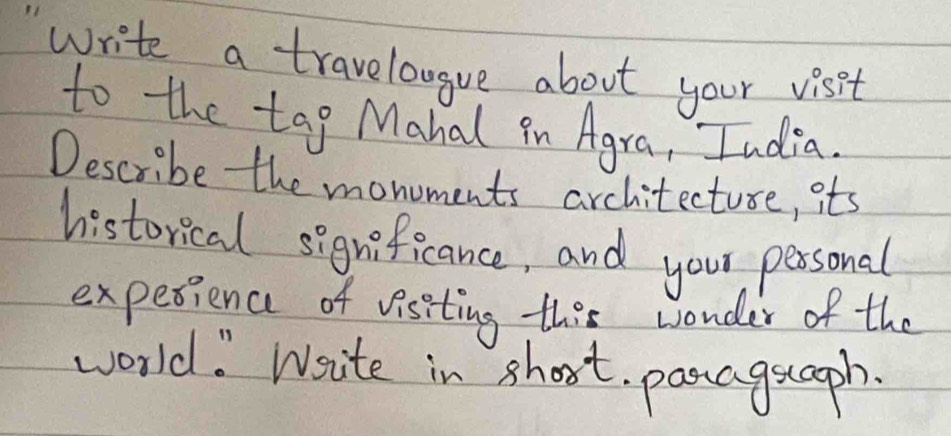 "Write a travelougue about your visit
to the taj Mahal in Agra, India.
Describe the monuments architecture, its
historical significance, and your personal
experience of visiting this wonder of the
world." Write in short. paragraph.